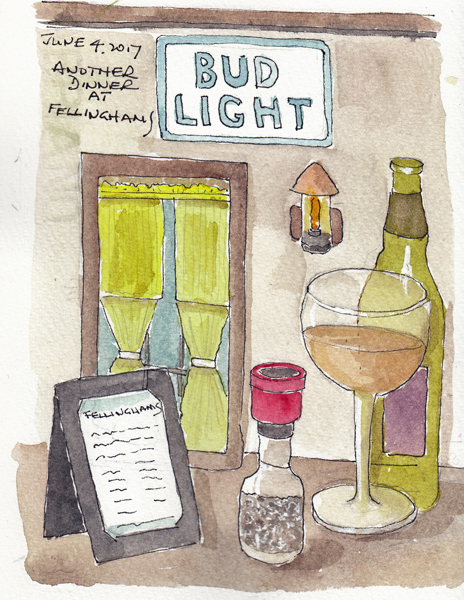 JUNE 4. 2017
ANOTHER
DINNER
AT
FELLINGHAMS
BUD
LIGHT
FELLINGHAMS